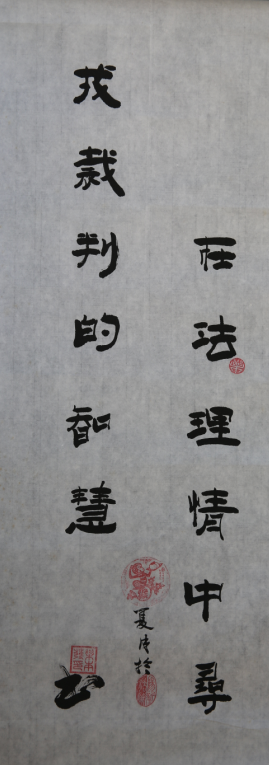 在法理情中尋
找裁判的智慧